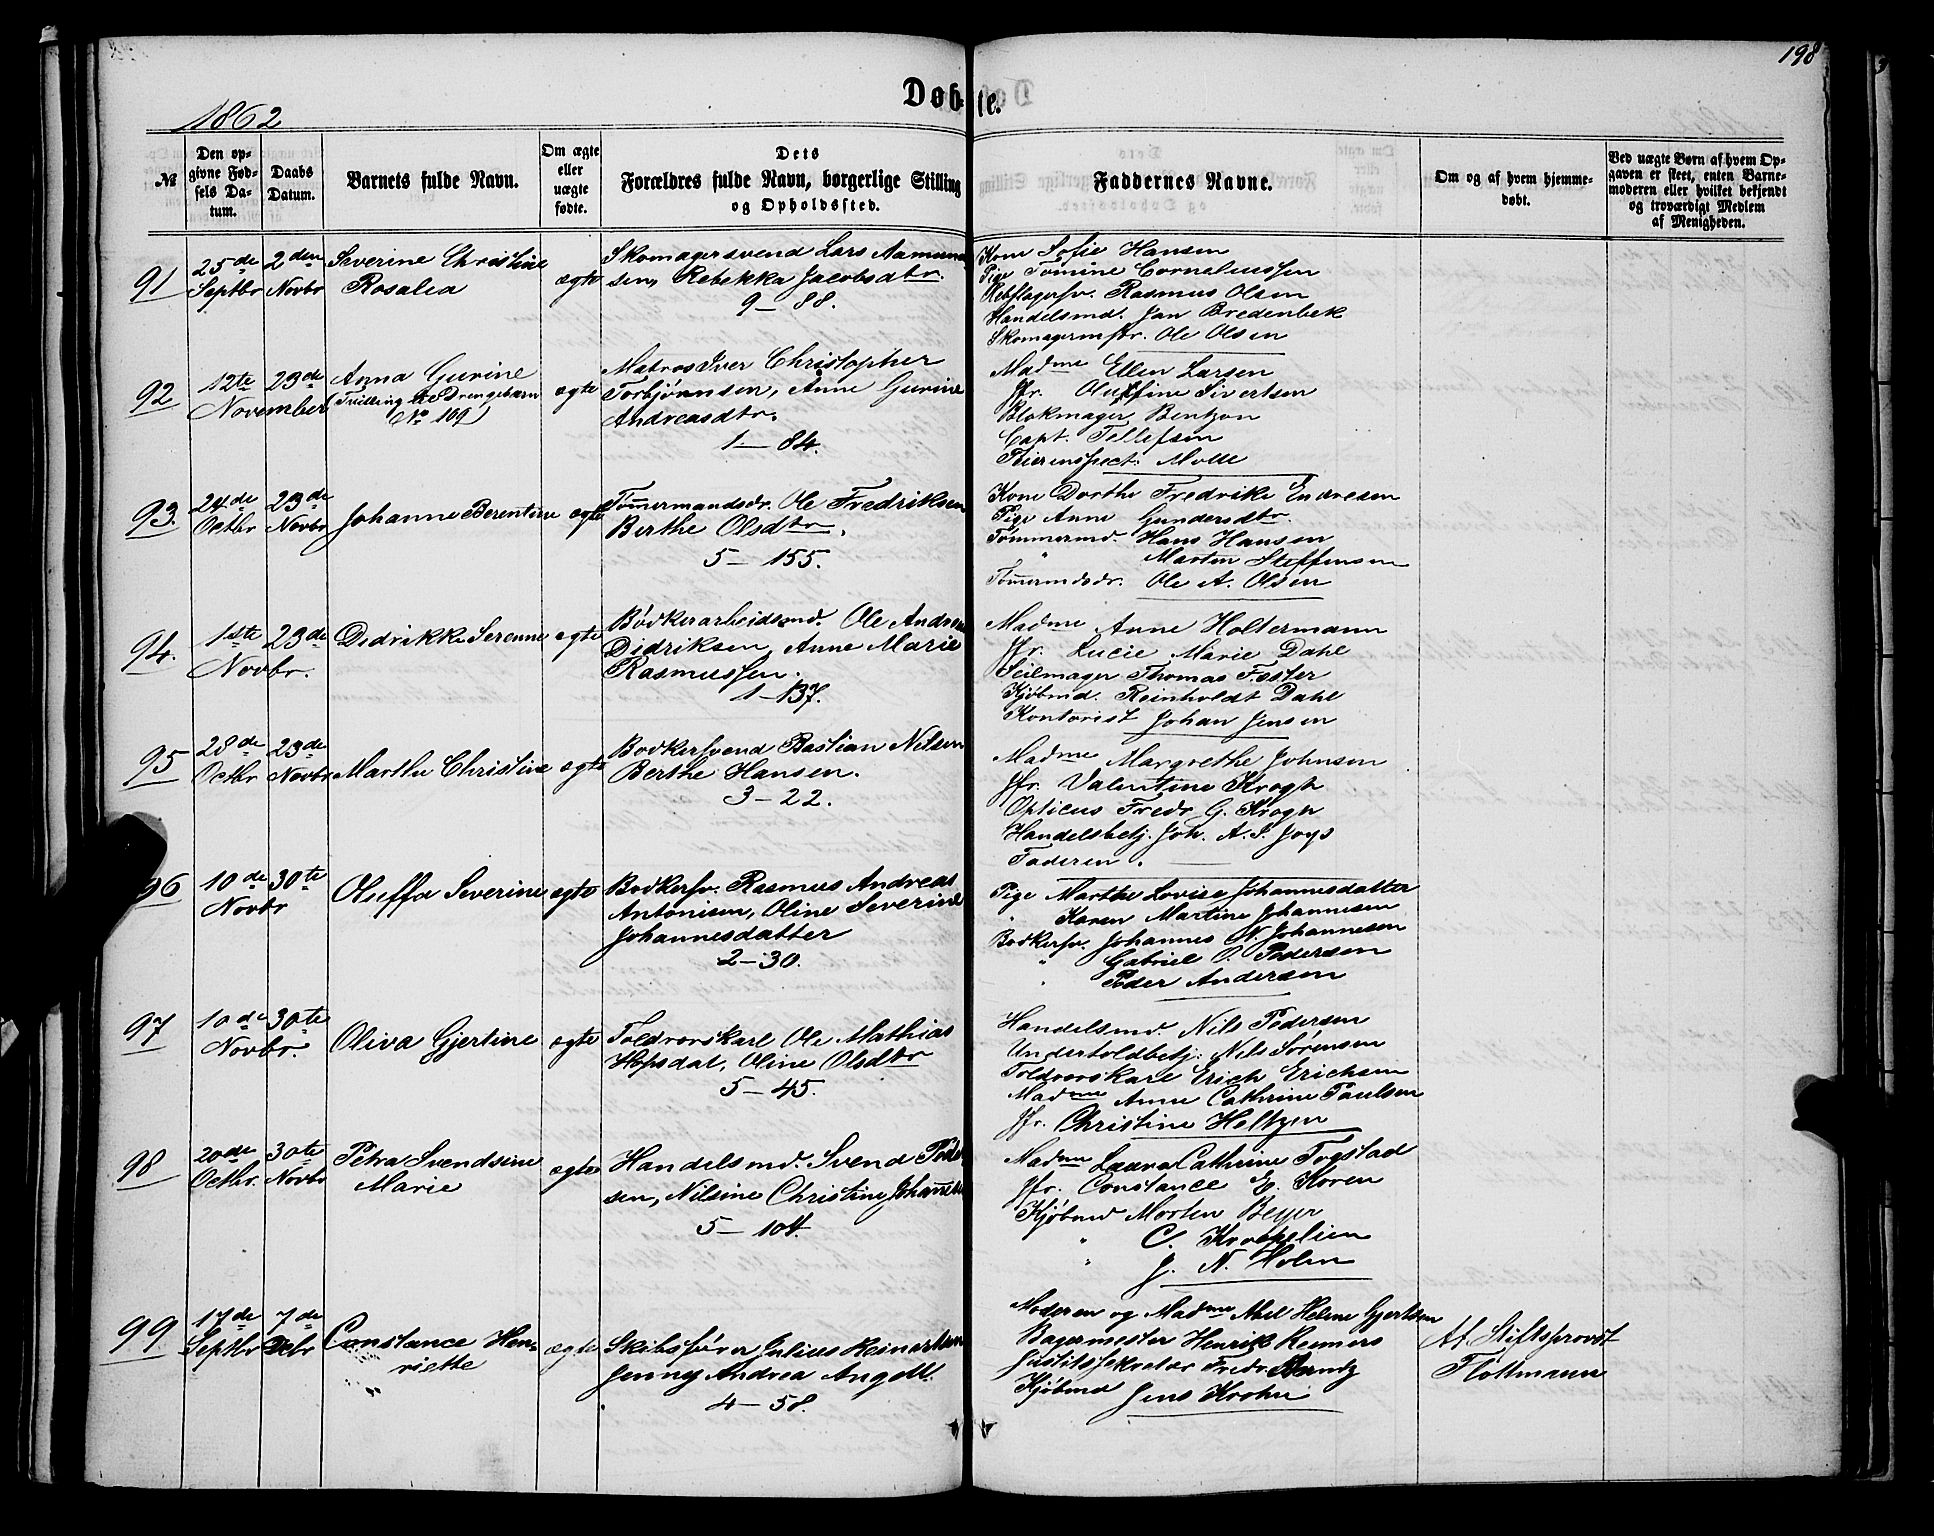 198
Døbte.
1862
№
Den opgivne Fødsels Datum.
Daabs Datum.
Barnets fulde Navn.
Om ægte eller uægte fødte.
Dets Forældres fulde Navn, borgerlige Stilling og Opholdssted.
Faddernes Navne.
Om og af hvem hjemmedøbt.
Ved uægte Børn af hvem Opgaven er skeet, enten Barnemoderen eller hvilket bekjendt og troværdigt Medlem af Menigheden.
91
25de Septbr
2den Novbr
Severine Christine
Rosalea
ægte
Skomagersvend Lars Aamund
sen, Rebekka Jacobsdtr.
9 – 88.
Kone Sofie Hansen
Pige Tomine Corneliussen
Rebslagersv. Rasmus Olsen
Handelsmd. Jan Bredenbek
Skomagermstr. Ole Olsen
92
12te November
23de
Anna Gurine
(Tvilling til Drengebarn
No 109)
ægte
Matros Iver Christopher
Torbjørnsen, Anne Gurine
Andreasdtr.
1 – 84.
Madme Ellen Larsen
Jfr. Oluffine Sivertsen
Blokmager Bentzon
Capt. Tellefsen
Toldinspect. Molle
93.
24de Octbr
23de Novbr
Johanne Berentine
ægte
Tømermandsdr. Ole Fredriksen
Berthe Olsdtr.
5 – 155.
Kone Dorthe Fredrike Endresen
Pige Anne Gundersdtr.
Tømmermd. Hans Hansen
" Martin Steffensen
Tømermdsdr. Ole A. Olsen
94.
1ste Novbr.
23de
Didrikke Serenne
ægte
Bødkerarbeidsmd. Ole Andrea
Didriksen, Anne Marie
Rasmussen.
1 – 137.
Madme Anne Holtermann
Jfr. Lucie Marie Dahl
Seilmager Thomas Fæster
Kjøbmd. Reinholdt Dahl
Kontorist Johan Jensen
95
28de Octbr
23de Novbr
Marthe Christine
ægte
Bødkersvend Bastian Nilsen
Berthe Hansen.
3 – 22.
Madme Margrethe Johnsen
Jfr. Valentine Krogh
Opticus Fredr G. Krogh
Handelsbetj. Joh. A. S. Joys
Faderen.
96
10de Novbr
30te
Oluffa Severine
ægte
Bødkersv. Rasmus Andreas
Antonisen, Oline Severine
Johannesdatter
2 – 30.
Pige Marthe Lovise Johannesdatter
" Karen Martine Johannesen
Bødkersv. Johannes N. Johannesen
" Gabriel O. Pedersen
" Peder Andersen
97
10de Novbr.
30te
Oliva Gjertine
ægte
Toldrorskarl Ole Mathias
Hopsdal, Oline Olsdtr
5 – 45.
Handelsmd. Nils Pedersen
Undertoldbetj: Nils Sørensen
Toldrorskarl Erich Erichsen
Madme Anne Cathrine Paulsen
Jfr. Christine Heltzen
98
20de Octbr.
30te Novbr
Petra Svendsine
Marie
ægte
Handelsmd. Svend Peder
sen, Nilsine Christine Johannes
5 – 104.
Madme Laura Cathrine Fogstad
Jfr. Constance E. Koren
Kjøbmd Morten Beyer
" C. Krokelien
" J. N. Holm
99
17de Septbr
7de Decbr
Constance Hen-
riette
ægte
Skibsfører Julius Reinertsen
Jenny Andrea Angell.
4 – 58.
Moderen og Madme Abel Helene Gjertsen
Bagermester Henrik Reimers
Justitssekretær Fredr
Kjøbmd Jens Krohn
Af Stiftsprovst